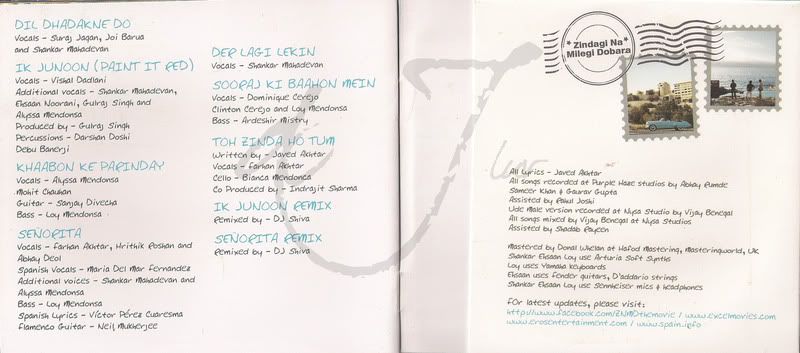 DIL DHADAKNE DO
Vocals - Suraj Jagan, Joi Barua
and Shankar Mahadevan
IK JUNOON (PAINT IT RED)
Vocals - Vishal Dadlani
Additional vocals - Shankar Mahadevan,
Ehsaan Noorani, Gulraj Singh and
Alyssa Mendonsa
Produced by - Gulraj Singh
Percussions - Darshan Doshi
Debu Banerji
KHAABON KE PARINDAY
Vocals - Alyssa Mendonsa
Mohit Chauhan
Guitar - Sanjay Divecha
Bass - Loy Mendonsa
SEÑORITA
Vocals - Farhan Akhtar, Hrithik Roshan and
Abhay Deol
Spanish Vocals - Maria Del Mar Fernandez
Additional voices - Shankar Mahadevan and
Alyssa Mendonsa
Bass - Loy Mendonsa
Spanish Lyrics - Víctor Pérez Cuaresma
Flamenco Guitar - Neil Mukherjee
DER LAGI LEKIN
Vocals - Shankar Mahadevan
SOORAJ KI BAAHON MEIN
Vocals - Dominique Cerejo
Clinton Cerejo and Loy Mendonsa
Bass - Ardeshir Mistry
TOH ZINDA HO TUM
Written by - Javed Akhtar
Vocals - Farhan Akhtar
Cello - Bianca Mendonca
Co Produced by - Indrajit Sharma
IK JUNOON REMIX
Remixed by - DJ Shiva
SEÑORITA REMIX
Remixed by - DJ Shiva
Zindagi Na
Milegi Dobara
All Lyrics - Javed Akhtar
All songs recorded at Purple Haze studios by Abhay Rumde
Sameer Khan & Gaurav Gupta
Assisted by Rahul Joshi
Ude Male version recorded at Nysa Studio by Vijay Benegal
All songs mixed by Vijay Benegal at Nysa Studios
Assisted by Shadab Rayeen
Mastered by Donal Whelan at Hafod Mastering, Masteringworld, UK
Shankar Ehsaan Loy use Arturia Soft Synths
Loy uses Yamaha keyboards
Ehsaan uses Fender guitars, D'addario strings
Shankar Ehsaan Loy use Sennheiser mics & headphones
For latest updates, please visit:
http://www.facebook.com/ZNMDthemovie / www.excelmovies.com
www.erosentertainment.com / www.spain.info